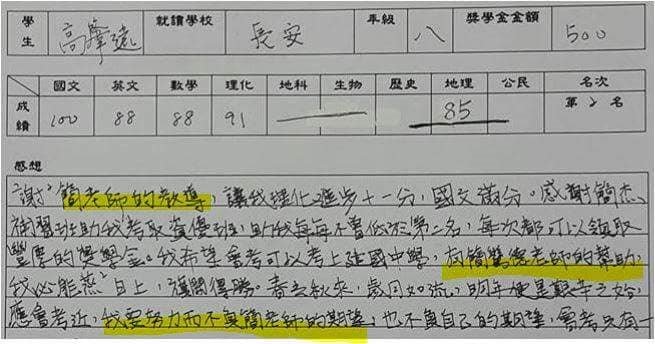 學生 高肇遠 就讀學校 長安 年級 八 獎學金金額 500
國文 英文 數學 理化 地科 生物 歷史 地理 公民 名次
成績 100 88 88 91 85 第2名
感想
謝謝簡老師的教導，讓我理化進步十一分，國文滿分。感謝簡杰
補習班助我考取資優班，助我每每不曾低於第二名，每次都可以領取
豐厚的獎學金。我希望會考可以考上建國中學，有簡老師的幫助
我必能蒸蒸日上，旗開得勝。春去秋來，歲月如流，明年便是艱辛之始，
應會考近，我要努力而不負簡老師的期望，也不負自己的期望，會考只有一